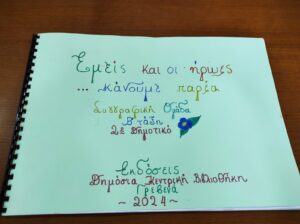 Εμείς και οι ήρωες
... κάνουμε παρέα
Συγγραφική Ομάδα
Β' τάξη
2ο Δημοτικό
Εκδόσεις
Δημόσια Κεντρική Βιβλιοθήκη
Γρεβενά
~ 2024 ~